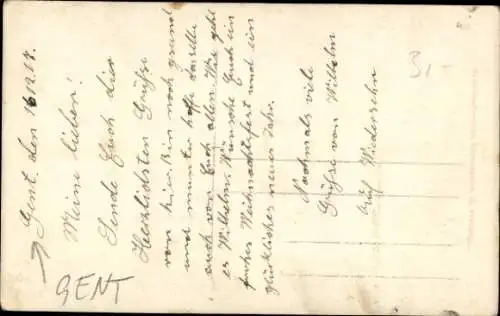 Gent. den 16.12.17.
Meine lieben!
Sende Euch die
Herzlichsten Grüße
von hier. Bin noch gesund
und munter hoffe dasselbe
auch von Euch allen. Wie geht
er Wilhelm. Wünsche Euch ein
frohes Weihnachtsfest und ein
glückliches neues Jahr.
Nochmals viele
Grüße von Wilhelm
Auf Wiedersehn
GENT
3,-